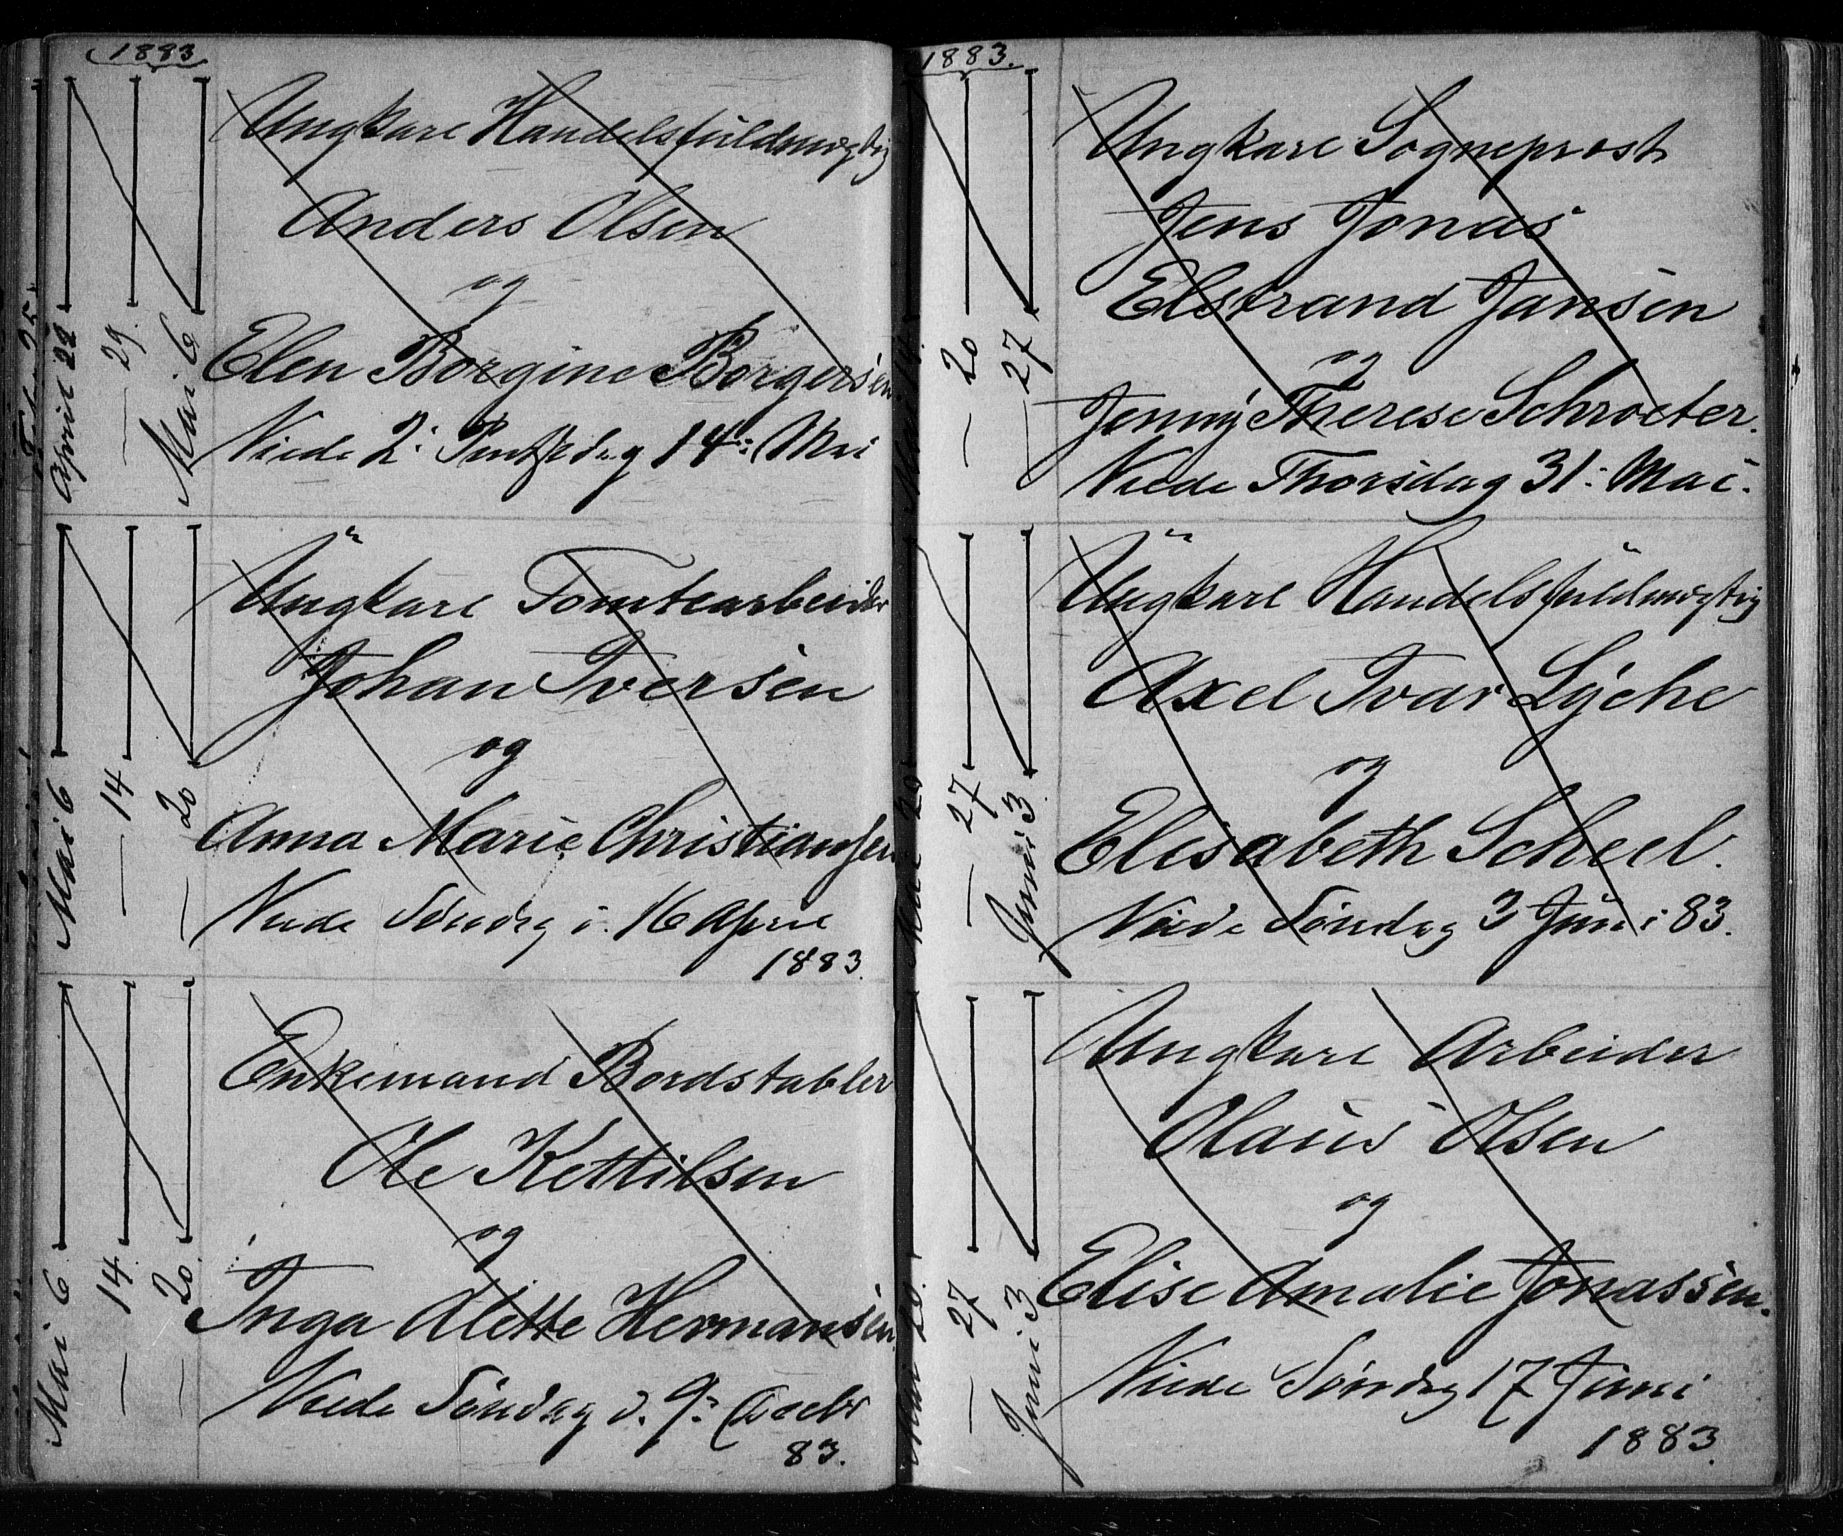 1883
April 22
— 29.
Mai 6
Ungkarl Handelsfuldmægtig
Anders Olsen
og
Elen Borgine Borgersen
Viede 2: Pintsedag 14: Mai
Mai 6
— 14
— 20
Ungkarl Tomtearbeider
Johan Iversen
og
Anna Marie Christiansen
Viede Søndag 16 April
1883.
Mai 6
— 14.
— 20.
Enkemand Bordstabler
Ole Kettilsen
og
Inga Alette Hermansen.
Viede Søndag d. 9:
83.
1883.
— 20
— 27
Ungkarl Sogneprest
Jens Jonas
Elstrand Jansen
og
Jenny Therese Schroeter.
Viede Thorsdag 31: Mai.
Mai 20
— 27
Juni 3
Ungkarl Handelsfuldmægtig
Axel Ivar Lyche
og
Elisabeth Scheel.
Viede Søndag 3 Juni 83.
Mai 20.
— 27
Juni 3
Ungkarl Arbeider
Olaus Olsen
og
Elise Amalie Jonassen.
Viede Søndag 17 Juni
1883.